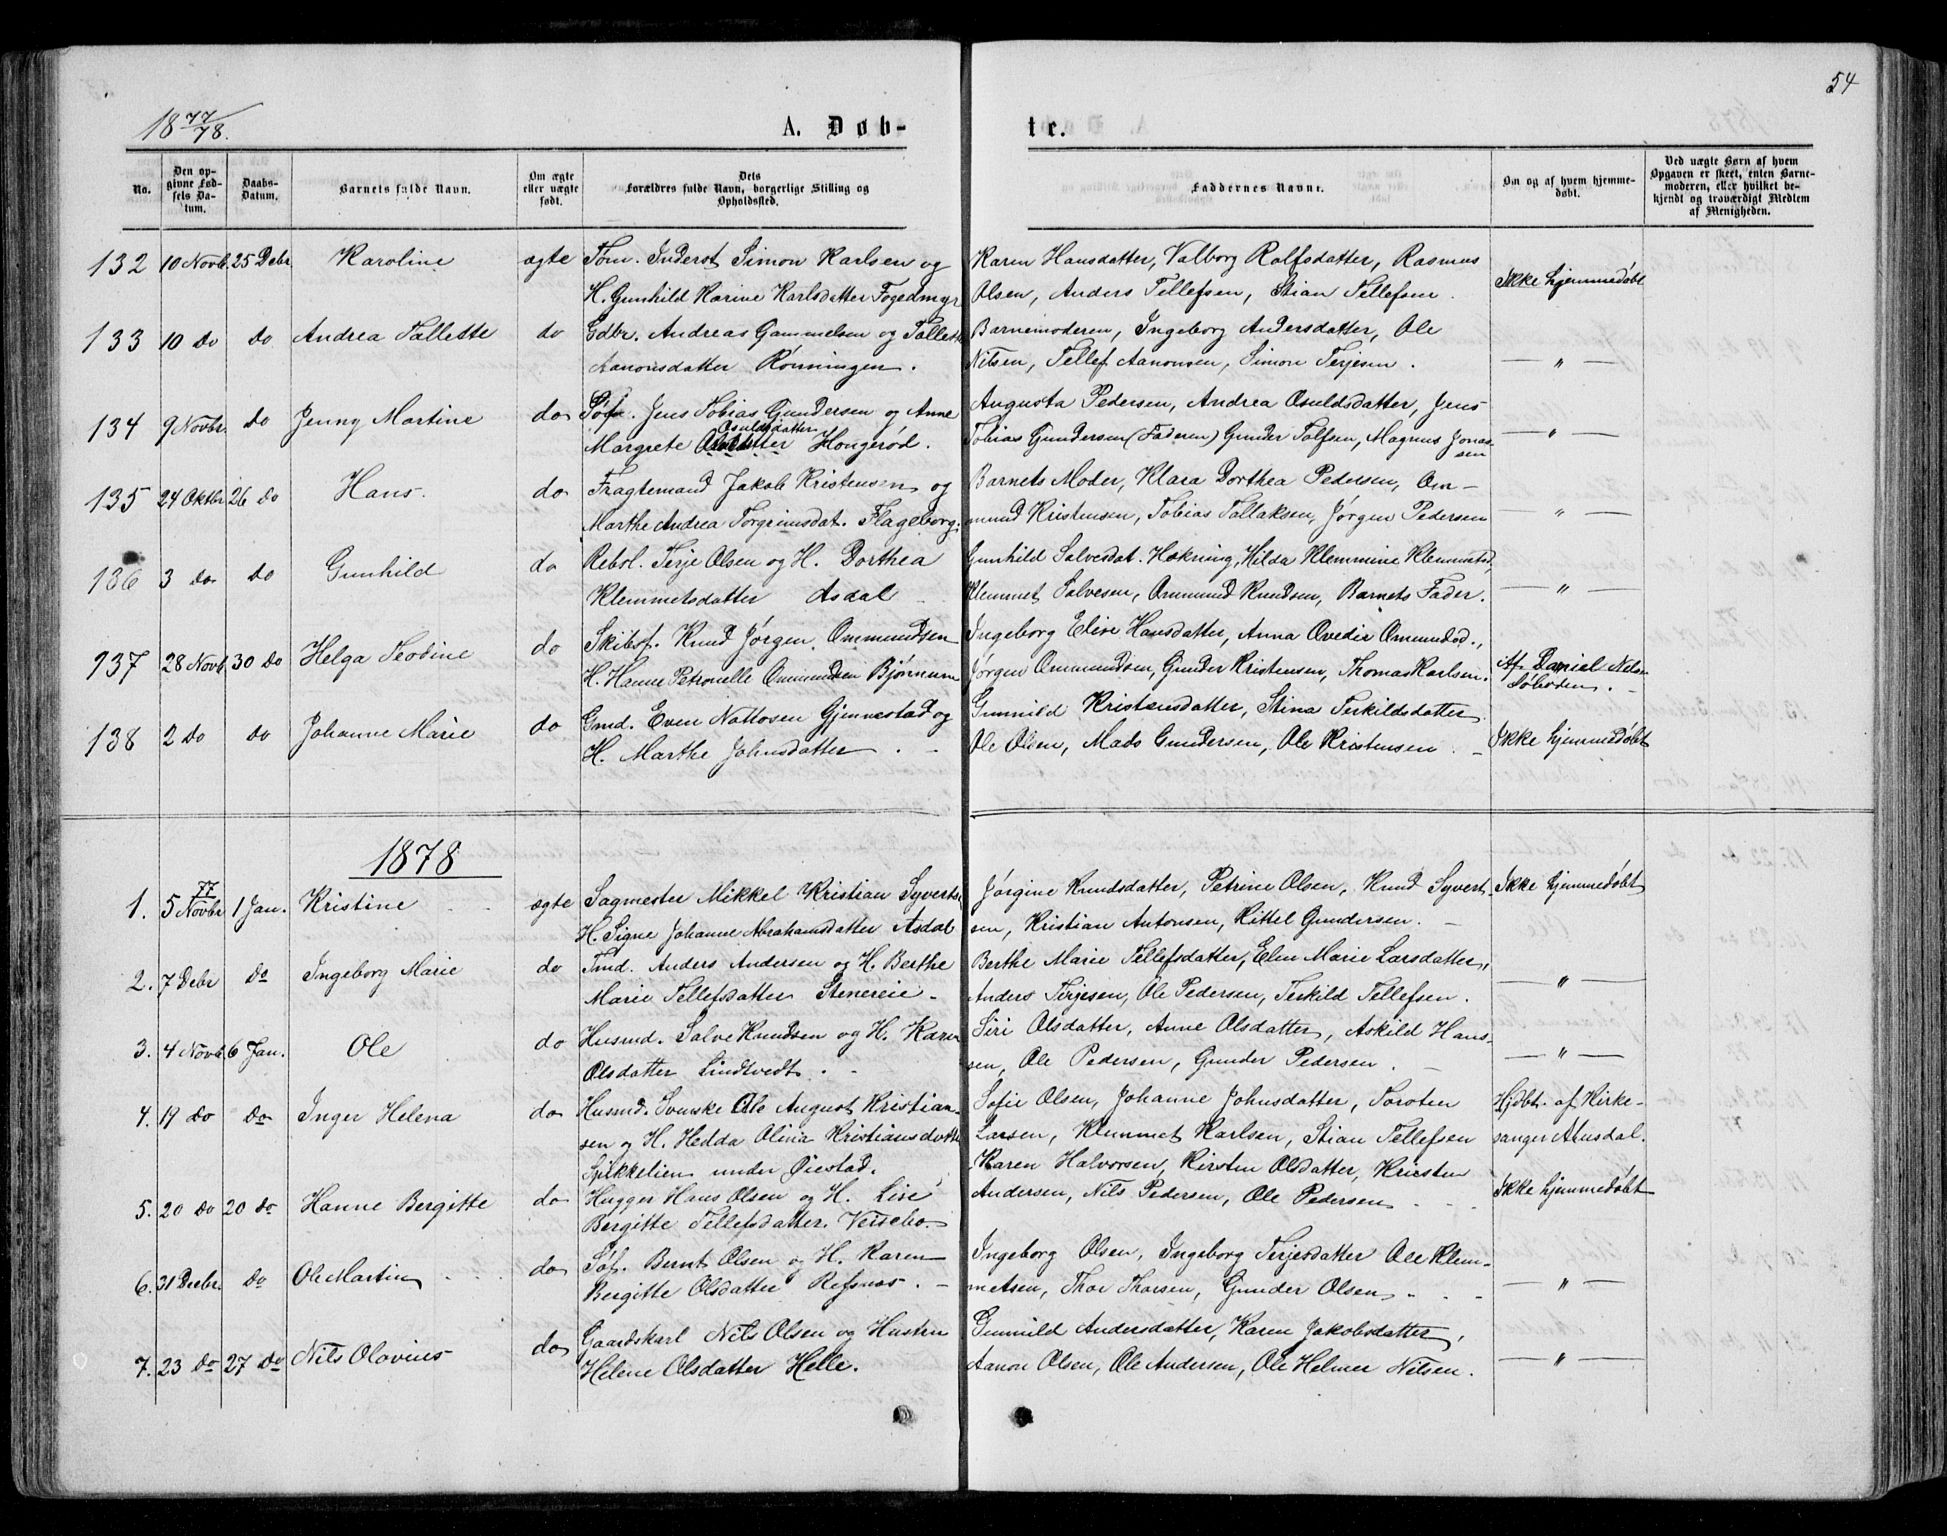 54
18 77/78.
A. Døb-
te.
No.
Den opgivne Fødsels Datum.
Daabs-Datum.
Barnets fulde Navn.
Om ægte eller uægte født.
Dets Forældres fulde Navn, borgerlige Stilling og Opholdssted.
Faddernes Navne.
Om og af hvem hjemmedøbt.
Ved uægte Børn af hvem Opgaven er skeet, enten Barnemoderen, eller hvilket bekjendt og troværdigt Medlem af Menigheden.
132 10 Novb. 25 Debr Karoline ægte Tøm. Inderst Simon Karlsen og
H. Gunhild Karine Karlsdatter Fogedmyr
Karen Hansdatter, Valborg Rolfsdatter, Rasmus
Olsen, Anders Tellefsen, Stian Tellefsen.
Ikke hjemmedøbt
133 10 do do Andrea Tallette do Gdbr. Andreas Gammelsen og Tallette
Aanonsdatter Rønningen.
Barnemoderen, Ingeborg Andersdatter, Ole
Nilsen, Tellef Aanonsen, Simon Terjesen.
— " —
134 9 Novbr. do Jenny Martine do Søf. Jens Tobias Gundersen og Anne
Margrete Osuldsdatter Hougerød.
Augusta Pedersen, Andrea Osuldsdatter, Jens
Tobias Gundersen (Faderen) Gunder Tolfsen, Magnus Jonassen
— " —
135 24 Oktbr 26 do Hans. do Fragtemand Jakob Kristensen og
Marthe Andrea Torgrimsdat. Flageborg.
Barnets Moder, Klara Dorthea Pedersen, Om-
mund Kristensen, Tobias Tallaksen, Jørgen Pedersen
— " —
136 3 do do Gunhild do Rebsl. Terje Olsen og H. Dorthea
Klemmetsdatter Asdal
Gunhild Salvesdat. Hækning, Hilda Klemmine Klemmetsd,
Klemmet Salvesen, Ommund Knudsen, Barnets Fader.
— " —
137 28 Novb. 30 do Helga Teodine do Skibsf. Knud Jørgen Ommundsen
H. Hanne Petronelle Ommundsen Bjønnum
Ingeborg Elise Hansdatter, Anna Ovedie Omundsd.,
Jørgen Ommundsen, Gunder Kristensen, Thomas Karlsen.
Af Daniel Nilsen
Løbeden.
138 2 do do Johanne Marie do Gmd. Even Nattosen Gjennestad og
H. Marthe Johnsdatter.
Gunnild Kristensdatter, Stina Terkildsdatter
Ole Olsen, Mads Gundersen, Ole Kristensen.
Ikke hjemmedøbt
1878
1. 5 Novbr 77 1 Jan. Kristine ægte Sagmester Mikkel Kristian Syverts.
H. Signe Johanne Abrahamsdatter Asdal
Jørgine Knudsdatter, Petrine Olsen, Knud Syvert-
sen, Kristian Antonsen, Kittel Gundersen.
Ikke hjemmedøbt
2. 7 Debr do Ingeborg Marie do Tmd. Anders Andersen og H. Berthe
Marie Tellefsdatter Stenereie.
Berthe Marie Tellefsdatter, Elen Marie Larsdatter,
Anders Terjesen, Ole Pedersen, Terkild Tellefsen.
— " —
3. 4 Novb. 6 Jan. Ole do Husmd. Salve Knudsen og H. Karen
Olsdatter Lindtvedt.
Siri Olsdatter, Anne Olsdatter, Askild Hans-
sen, Ole Pedersen, Gunder Pedersen.
— " —
4. 19 do do Inger Helena do Husmd. Svenske Ole August Kristian-
sen og H. Hedda Olina Kristiansdatter
Spikkelien under Øiestad.
Sofie Olsen, Johanne Johnsdatter, Toroten
Larsen, Klemmet Karlsen, Stian Tellefsen
Hjdbt. af Kirke-
sanger Ausdal.
5. 20 do 20 do Hanne Bergitte do Hugger Hans Olsen og H. Lise
Bergitte Tellefsdatter. Vessebo.
Karen Halvorsen, Kirsten Olsdatter, Kristen
Andersen, Nils Pedersen, Ole Pedersen
Ikke hjemmedøbt
6. 31 Decbr. do Ole Martin do Søf. Bernt Olsen og H. Karen
Bergitte Olsdatter Refsnæs.
Ingeborg Olsen, Ingeborg Terjesdatter Ole Klem-
metsen, Thor Thorsen, Gunder Olsen
— " —
7. 23 do 27 do Nils Olavius do Gaardskarl Nils Olsen og Hustru
Helene Olsdatter Helle.
Gunnild Andersdatter, Karen Jakobsdatter,
Aanon Olsen, Ole Andersen, Ole Helmer Nilsen.
— " —